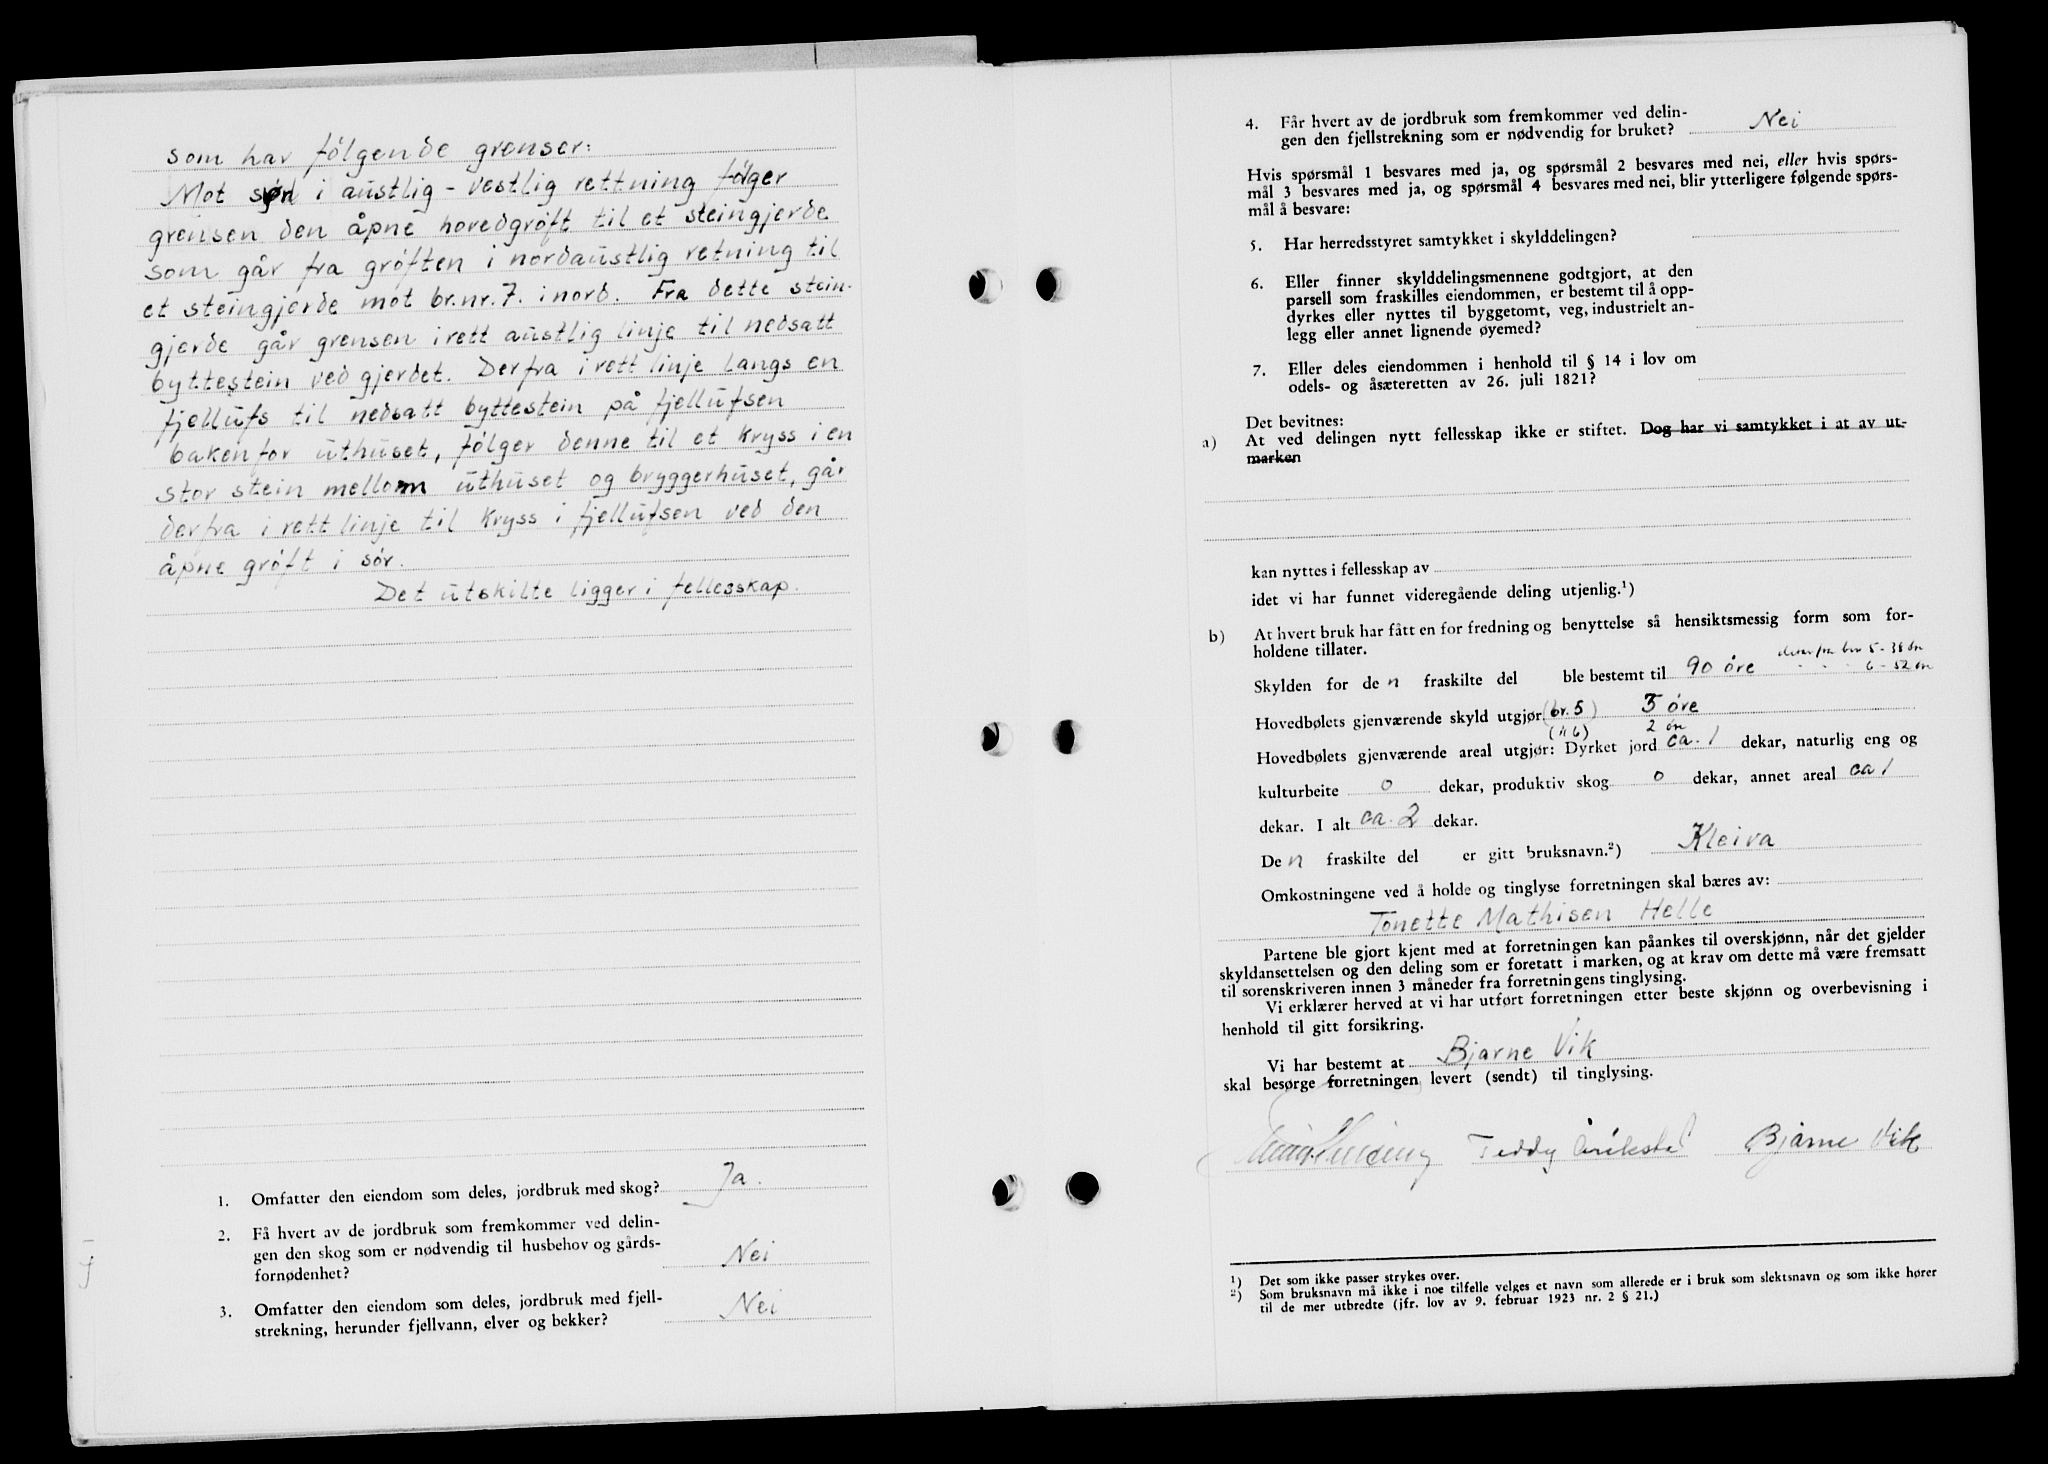 som har følgende grenser:
Mot sør i austlig - vestlig rettning følger
grensen den åpne hovedgrøft til et steingjerde
som går fra grøften i nordaustlig retning til
et steingjerde mot br.nr. 7. i nord. Fra dette stein-
gjerde går grensen i rett austlig linje til nedsatt
byttestein ved gjerdet. Derfra i rett linje langs en
fjellufs til nedsatt byttestein på fjellufsen
bakenfor uthuset, følger denne til et kryss i en
stor stein mellom uthuset og bryggerhuset, går
derfra i rett linje til kryss i fjellufsen ved den
åpne grøft i sør.
Det utskilte ligger i fellesskap.
1. Omfatter den eiendom som deles, jordbruk med skog? Ja.
2. Få hvert av de jordbruk som fremkommer ved delin-
gen den skog som er nødvendig til husbehov og gårds-
fornødenhet? Nei
3. Omfatter den eiendom som deles, jordbruk med fjell-
strekning, herunder fjellvann, elver og bekker? Nei
4. Får hvert av de jordbruk som fremkommer ved delin-
gen den fjellstrekning som er nødvendig for bruket? Nei
Hvis spørsmål 1 besvares med ja, og spørsmål 2 besvares med nei, eller hvis spørs-
mål 3 besvares med ja, og spørsmål 4 besvares med nei, blir ytterligere følgende spørs-
mål å besvare:
5. Har herredsstyret samtykket i skylddelingen?
6. Eller finner skylddelingsmennene godtgjort, at den
parsell som fraskilles eiendommen, er bestemt til å opp-
dyrkes eller nyttes til byggetomt, veg, industrielt an-
legg eller annet lignende øyemed?
7. Eller deles eiendommen i henhold til § 14 i lov om
odels- og åsæteretten av 26. juli 1821?
Det bevitnes:
a) At ved delingen nytt fellesskap ikke er stiftet. Dog har vi samtykket i at av ut-
marken
kan nyttes i fellesskap av
idet vi har funnet videregående deling utjenlig.¹)
b) At hvert bruk har fått en for fredning og benyttelse så hensiktsmessig form som for-
holdene tillater.
derav fra bnr 5 - 38 øre
Skylden for den fraskilte del ble bestemt til 90 øre - - - 6 - 52 øre
Hovedbølets gjenværende skyld utgjør (br. 5) 3 øre
(" 6) 2 øre
Hovedbølets gjenværende areal utgjør: Dyrket jord ca. 1 dekar, naturlig eng og
kulturbeite 0 dekar, produktiv skog 0 dekar, annet areal ca 1
dekar. I alt ca. 2 dekar.
Den fraskilte del er gitt bruksnavn.²) Kleiva
Omkostningene ved å holde og tinglyse forretningen skal bæres av:
Tonette Mathisen Helle
Partene ble gjort kjent med at forretningen kan påankes til overskjønn, når det gjelder
skyldansettelsen og den deling som er foretatt i marken, og at krav om dette må være fremsatt
til sorenskriveren innen 3 måneder fra forretningens tinglysing.
Vi erklærer herved at vi har utført forretningen etter beste skjønn og overbevisning i
henhold til gitt forsikring.
Vi har bestemt at Bjarne Vik
skal besørge forretningen levert (sendt) til tinglysing.
Teddy Bjarne Vik
¹) Det som ikke passer strykes over.
²) Som bruksnavn må ikke i noe tilfelle velges et navn som allerede er i bruk som slektsnavn og som ikke hører
til de mer utbredte (jfr. lov av 9. februar 1923 nr. 2 § 21.)